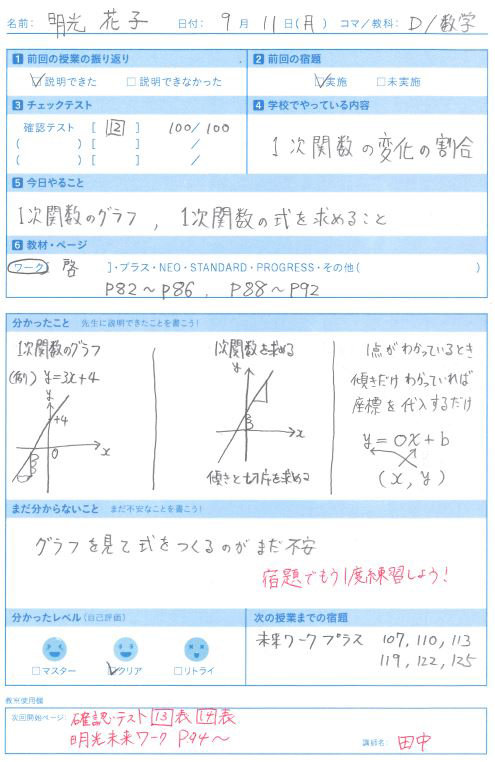 名前: 明光 花子 日付: 9月11日(月) コマ/教科: D/数学
1 前回の授業の振り返り
☑説明できた □説明できなかった
2 前回の宿題
☑実施 □未実施
3 チェックテスト
確認テスト [ 12 ] 100/100
( ) [ ] /
( ) [ ] /
4 学校でやっている内容
1次関数の変化の割合
5 今日やること
1次関数のグラフ, 1次関数の式を求めること
6 教材・ページ
ワーク[ 啓 ]・プラス・NEO・STANDARD・PROGRESS・その他( )
P82〜P86, P88〜P92
分かったこと 先生に説明できたことを書こう!
1次関数のグラフ
(例) y=3x+4
y
+4
0
x
1次関数を求める
y
x
傾きと切片を求める
1点がわかっているとき
傾きだけわかっていれば
座標を代入するだけ
y=ox+b
(x, y)
まだ分からないこと まだ不安なことを書こう!
グラフを見て式をつくるのがまだ不安
宿題でもう1度練習しよう!
分かったレベル(自己評価)
□マスター ☑クリア □リトライ
次の授業までの宿題
未来ワークプラス 107, 110, 113
119, 122, 125
教室使用欄
次回開始ページ: 確認テスト 13 表 14 表
明光未来ワーク P94〜
講師名: 田中